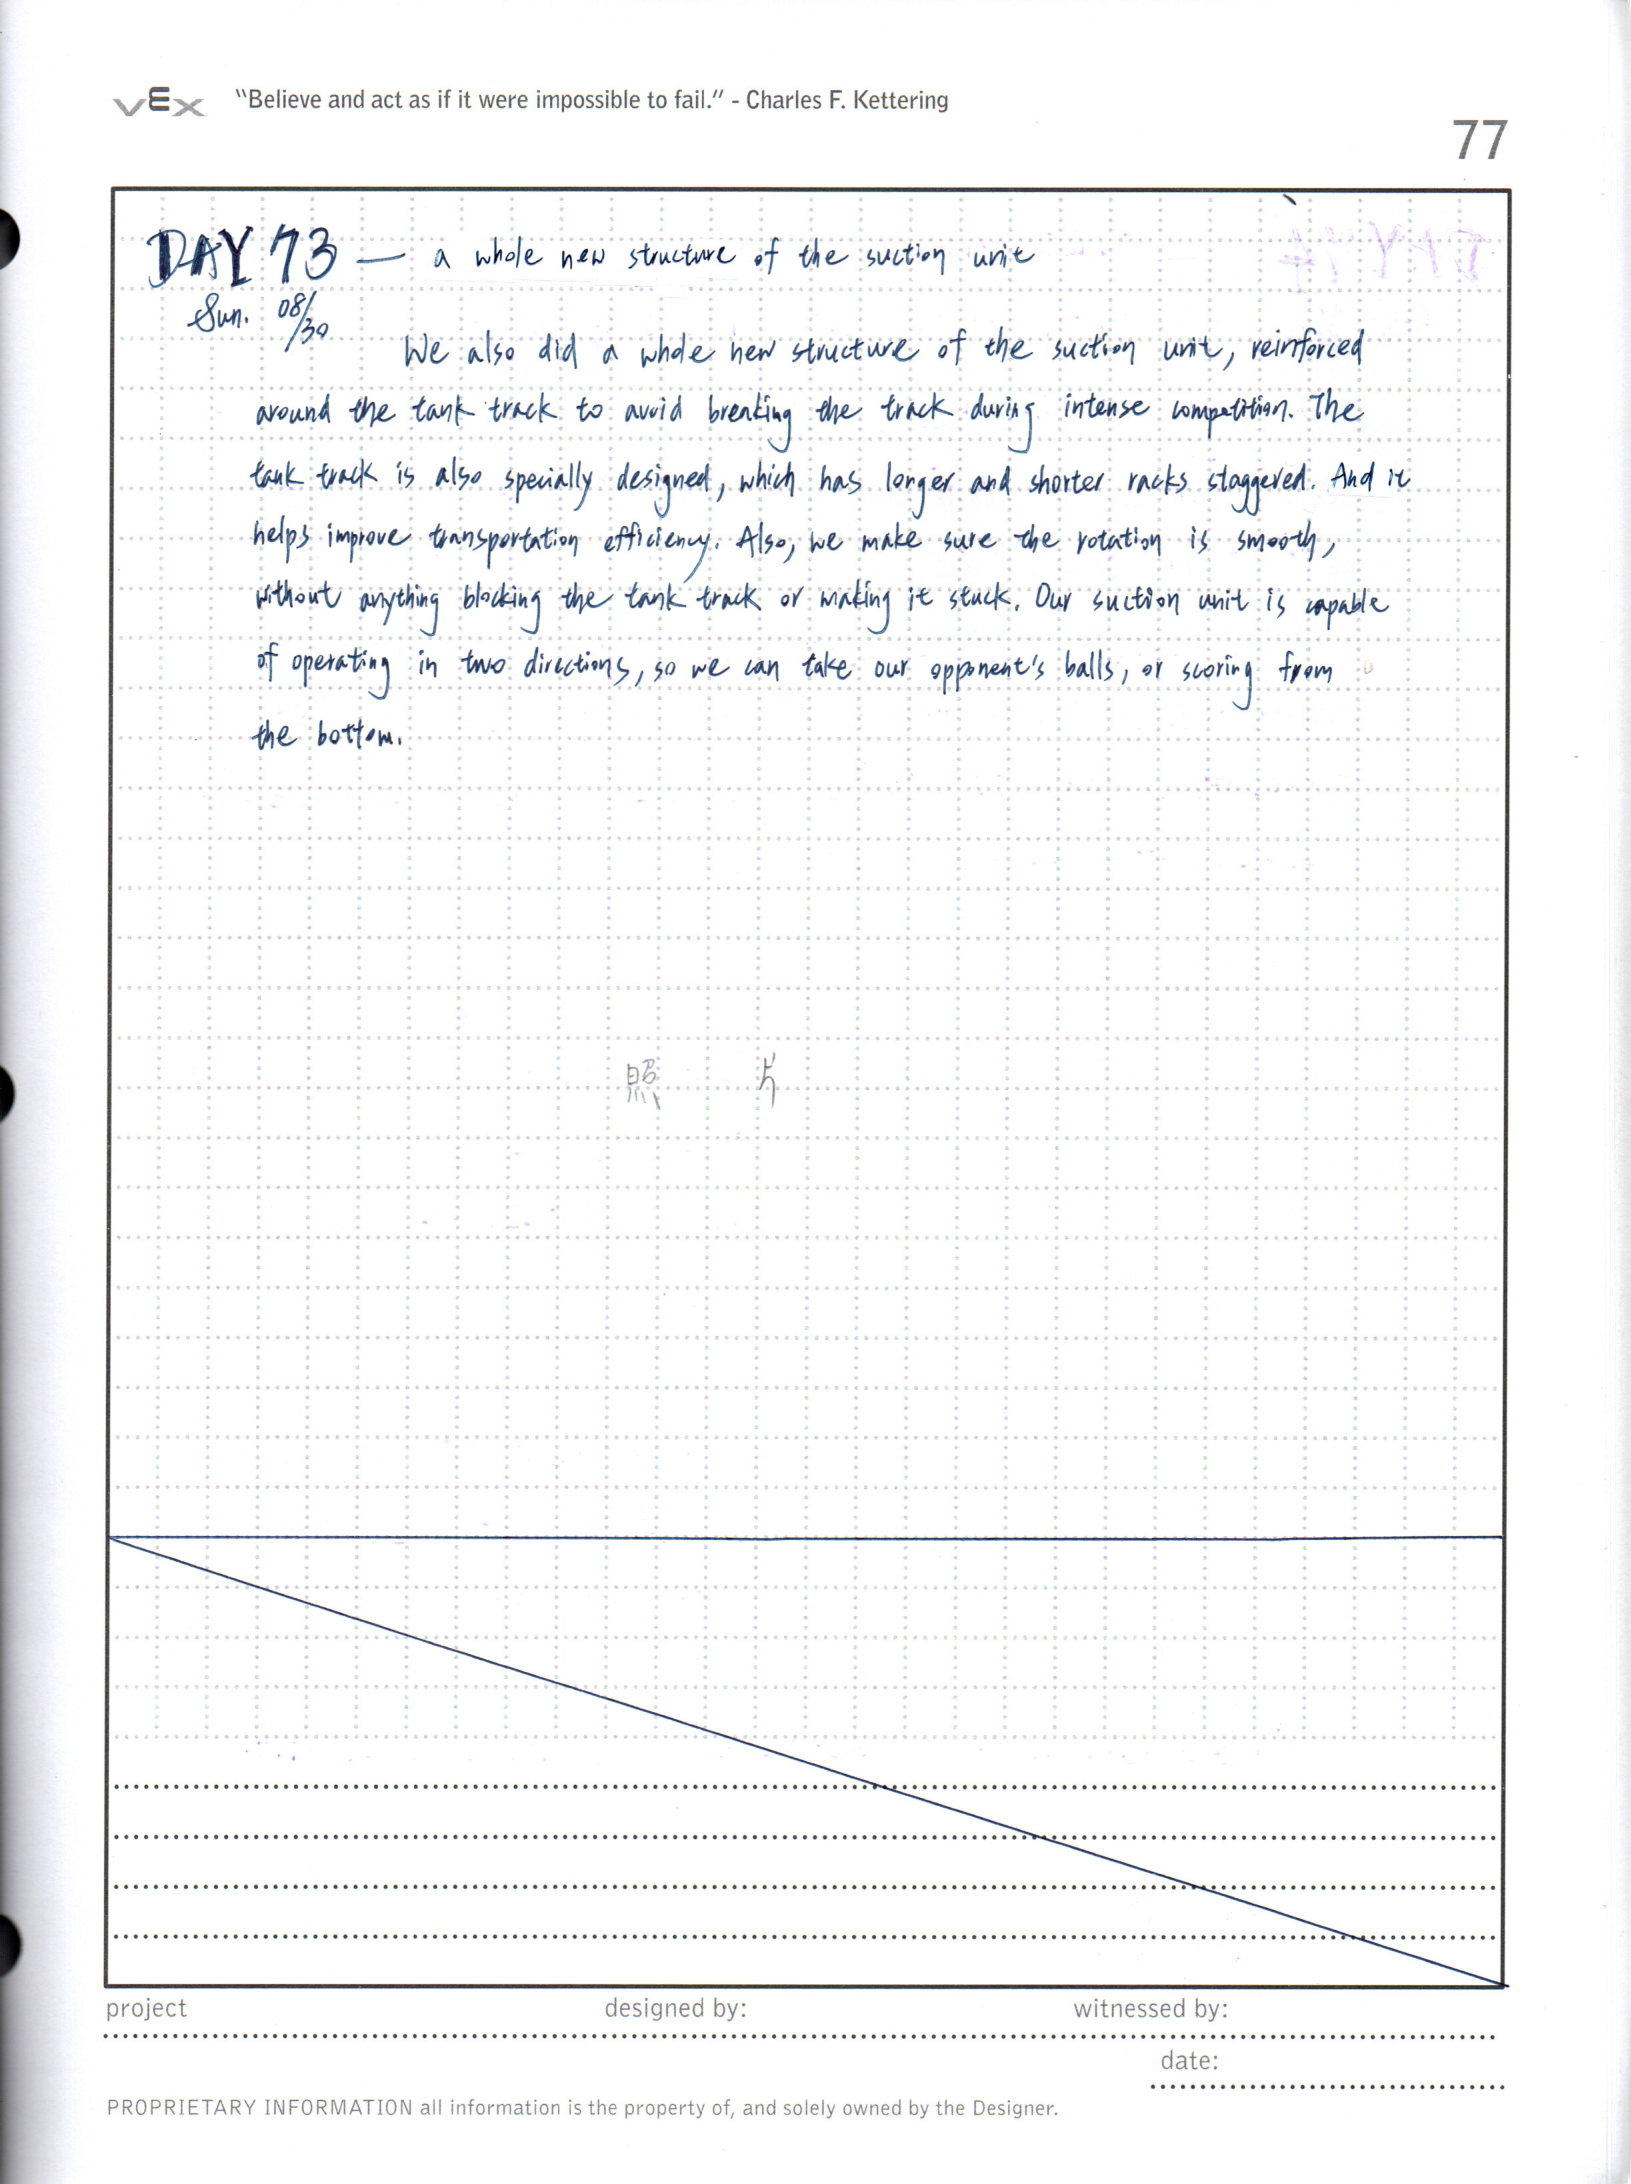 vEx "Believe and act as if it were impossible to fail." - Charles F. Kettering
77
DAY 73 — a whole new structure of the suction unit
Sun. 08/30
We also did a whole new structure of the suction unit, reinforced
around the tank track to avoid breaking the track during intense competition. The
tank track is also specially designed, which has longer and shorter racks staggered. And it
helps improve transportation efficiency. Also, we make sure the rotation is smooth,
without anything blocking the tank track or making it stuck. Our suction unit is capable
of operating in two directions, so we can take our opponent's balls, or scoring from
the bottom.
照 片
project designed by: witnessed by:
date:
PROPRIETARY INFORMATION all information is the property of, and solely owned by the Designer.